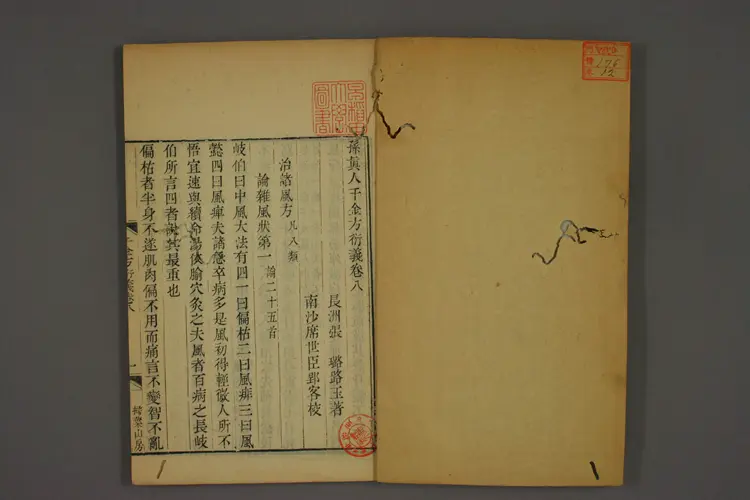 孫眞人千金方衍義卷八
長洲張 璐路玉著
南沙席世臣郢客校
治諸風方 凡八類
論雜風狀第一 論二十五首
岐伯曰中風大法有四一曰偏枯二曰風痱三曰風
懿四曰風痺夫諸急卒病多是風初得輕微人所不
悟宜速與續命湯依腧穴灸之夫風者百病之長岐
伯所言四者說其最重也
偏枯者半身不遂肌肉偏不用而痛言不變智不亂
千金方衍義卷八
一
掃葉山房
早稻田
大學
圖書